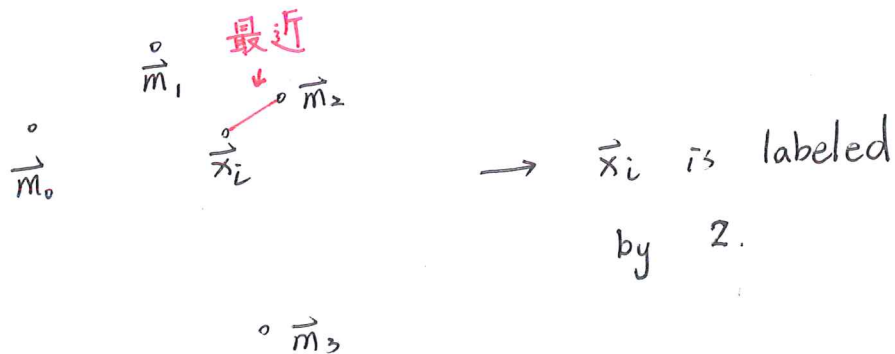 最近
m⃗₁
m⃗₂
m⃗₀
x⃗ᵢ
→ x⃗ᵢ is labeled
by 2.
m⃗₃